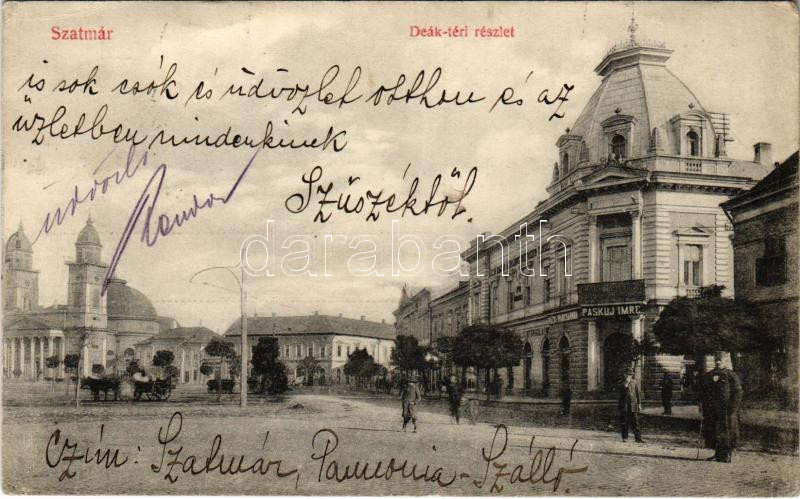 Szatmár
Deák-téri részlet
is sok csók és üdvözlet otthon és az
üzletben mindenkinek
Szűszéktől.
üdvözli
Sandor
darabanth
PASKUJ IMRE
Czím: Szatmár, Pannonia-Szálló.